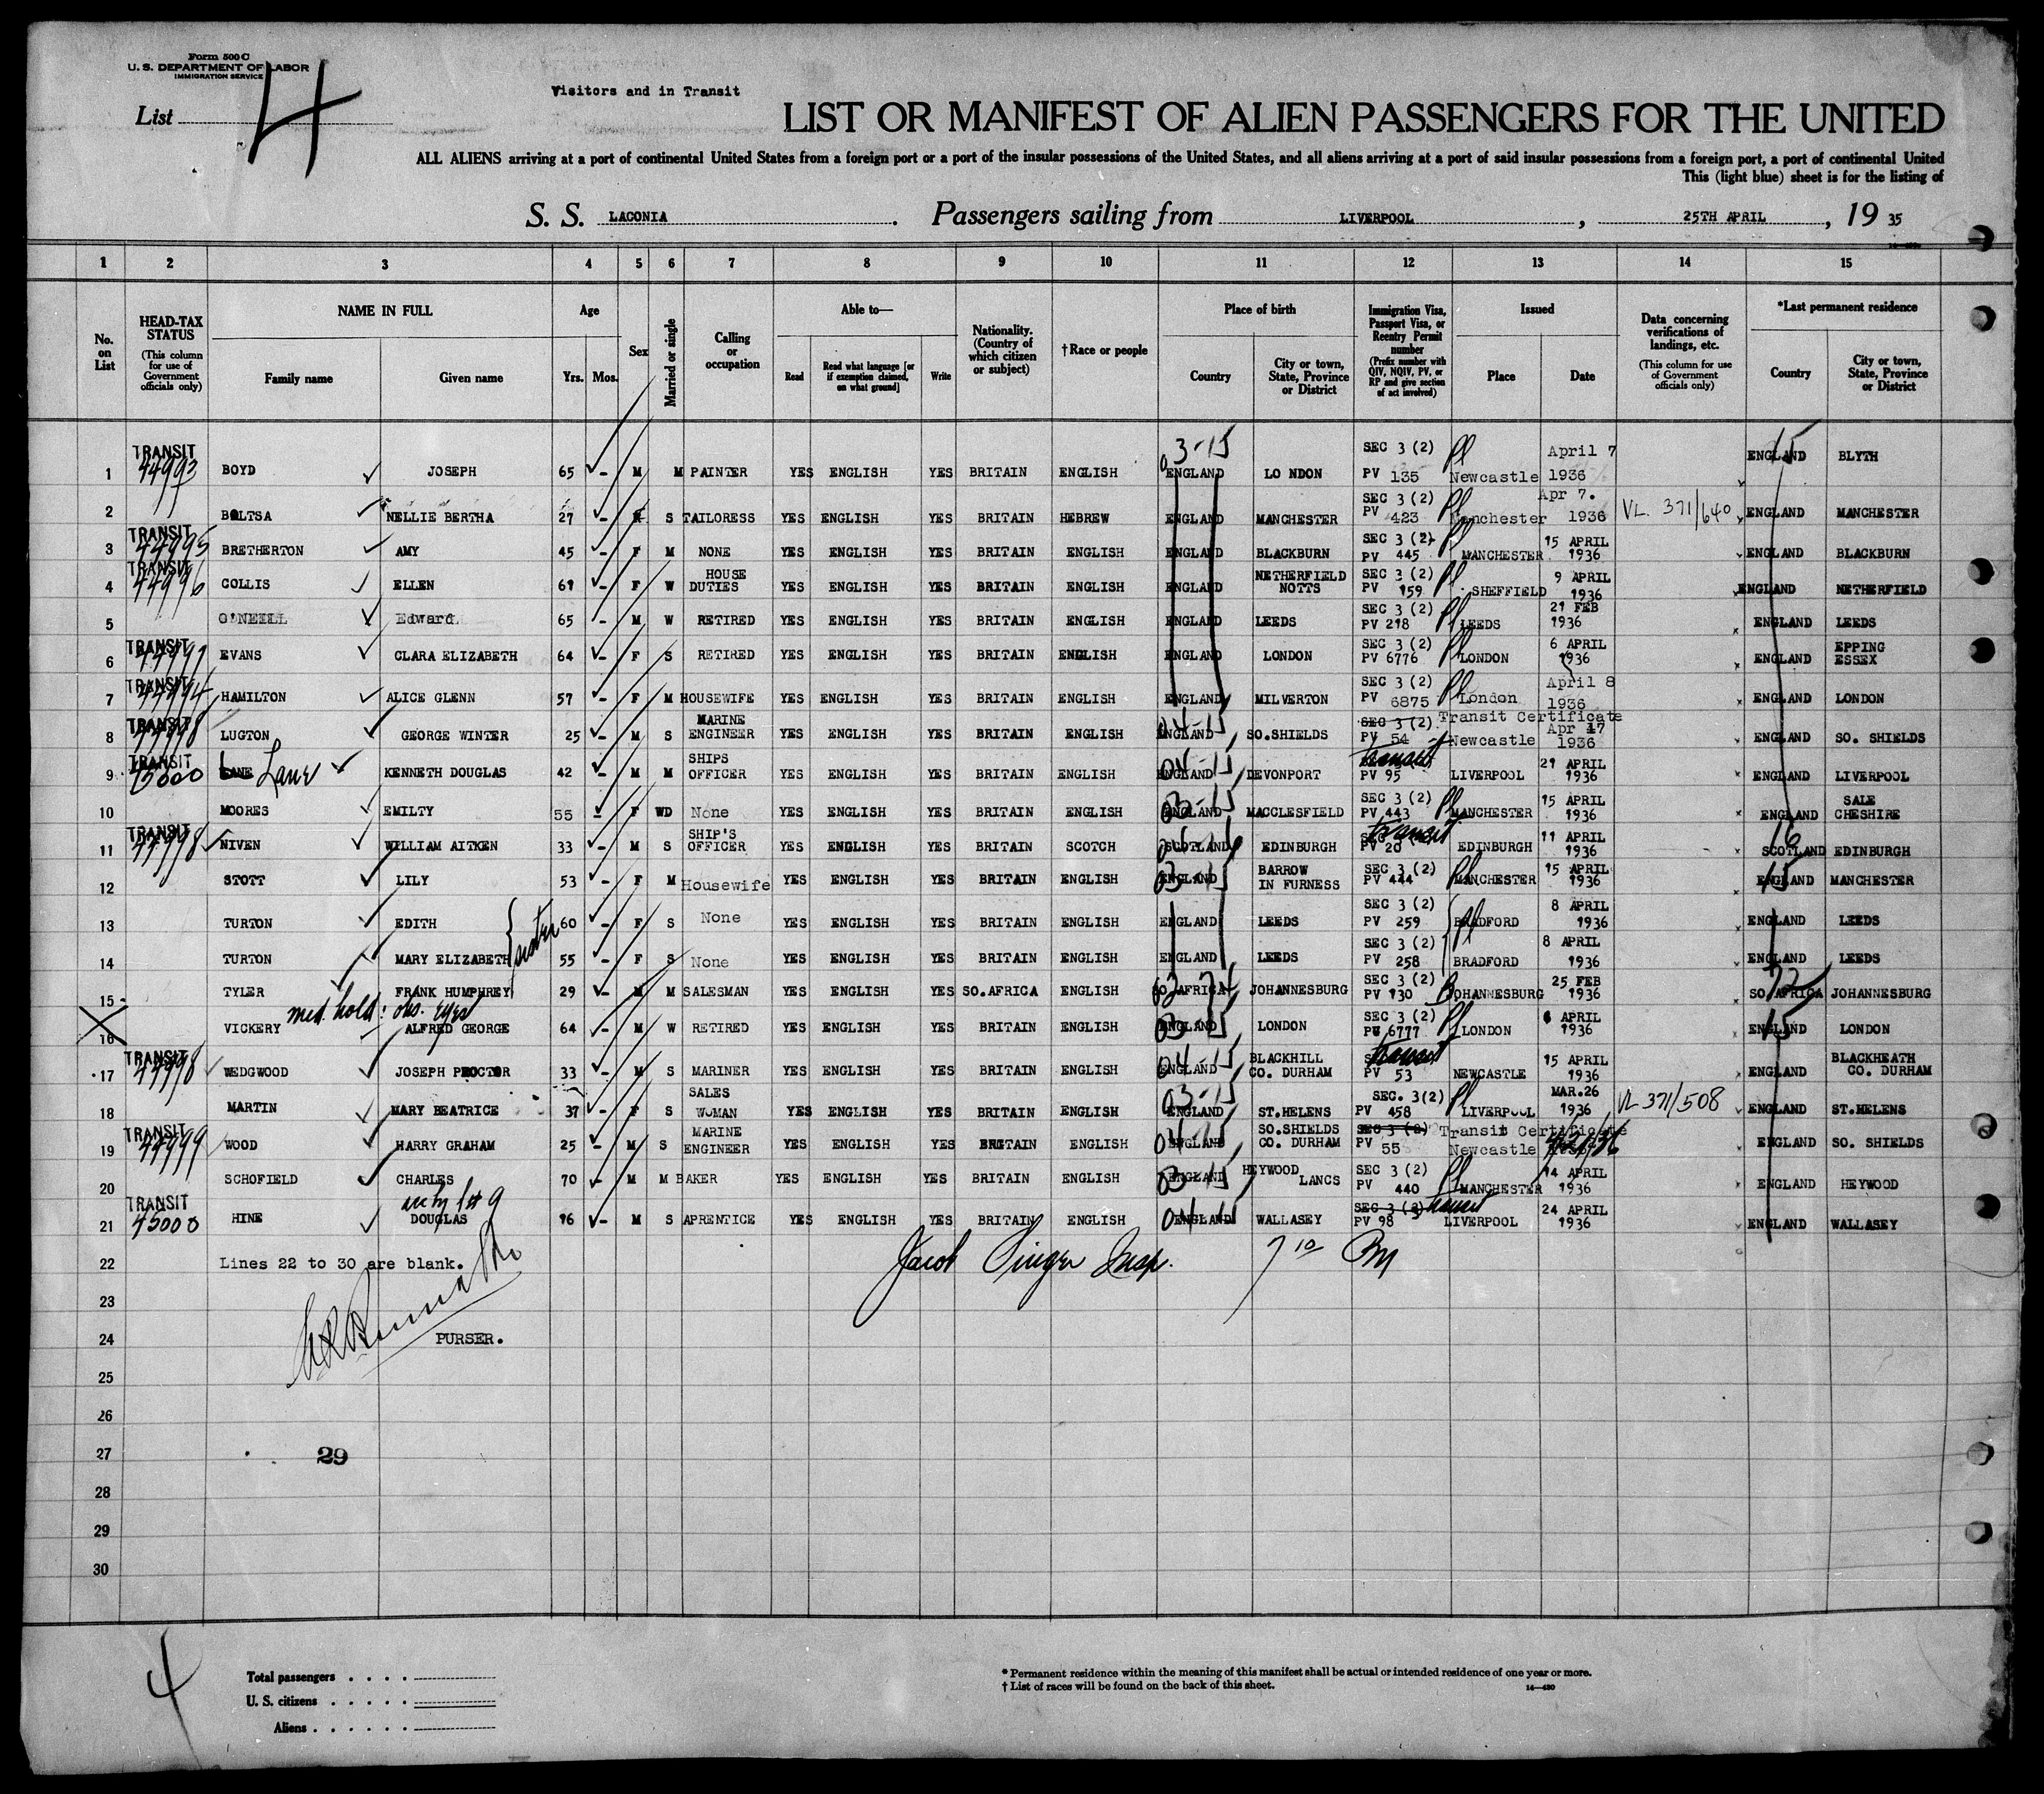 Form 500 C
U. S. DEPARTMENT OF LABOR
IMMIGRATION SERVICE
List 4
Visitors and in Transit
LIST OR MANIFEST OF ALIEN PASSENGERS FOR THE UNITED
ALL ALIENS arriving at a port of continental United States from a foreign port or a port of the insular possessions of the United States, and all aliens arriving at a port of said insular possessions from a foreign port, a port of continental United
This (light blue) sheet is for the listing of
S. S. LACONIA. Passengers sailing from LIVERPOOL, 25TH APRIL, 19 35
1 2 3 4 5 6 7 8 9 10 11 12 13 14 15
No. on List
HEAD-TAX STATUS (This column for use of Government officials only)
NAME IN FULL Family name Given name
Age Yrs. Mos.
Sex
Married or single
Calling or occupation
Able to— Read Read what language [or if exemption claimed, on what ground] Write
Nationality. (Country of which citizen or subject)
†Race or people
Place of birth Country City or town, State, Province or District
Immigration Visa, Passport Visa, or Reentry Permit number (Prefix number with QIV, NQIV, PV, or RP and give section of act involved)
Issued Place Date
Data concerning verifications of landings, etc. (This column for use of Government officials only)
*Last permanent residence Country City or town, State, Province or District
1 TRANSIT 44993 BOYD JOSEPH 65 - M M PAINTER YES ENGLISH YES BRITAIN ENGLISH 03-15 ENGLAND LO NDON SEC 3 (2) PV 135 Newcastle April 7 1936 15 ENGLAND BLYTH
2 BOLTSA NELLIE BERTHA 27 - S TAILORESS YES ENGLISH YES BRITAIN HEBREW ENGLAND MANCHESTER SEC 3 (2) PV 423 Manchester Apr 7. 1936 VL. 371/640 ENGLAND MANCHESTER
3 TRANSIT 44995 BRETHERTON AMY 45 - F M NONE YES ENGLISH YES BRITAIN ENGLISH ENGLAND BLACKBURN SEC 3 (2) PV 445 MANCHESTER 15 APRIL 1936 ENGLAND BLACKBURN
4 TRANSIT 44996 COLLIS ELLEN 61 - F W HOUSE DUTIES YES ENGLISH YES BRITAIN ENGLISH ENGLAND NETHERFIELD NOTTS SEC 3 (2) PV 159 SHEFFIELD 9 APRIL 1936 ENGLAND NETHERFIELD
5 O'NEILL Edward 65 - M W RETIRED YES ENGLISH YES BRITAIN ENGLISH ENGLAND LEEDS SEC 3 (2) PV 218 LEEDS 21 FEB 1936 ENGLAND LEEDS
6 TRANSIT 44997 EVANS CLARA ELIZABETH 64 - F S RETIRED YES ENGLISH YES BRITAIN ENGLISH ENGLAND LONDON SEC 3 (2) PV 6776 LONDON 6 APRIL 1936 ENGLAND EPPING ESSEX
7 TRANSIT 44994 HAMILTON ALICE GLENN 57 - F M HOUSEWIFE YES ENGLISH YES BRITAIN ENGLISH ENGLAND MILVERTON SEC 3 (2) PV 6875 London April 8 1936 ENGLAND LONDON
8 TRANSIT 44998 LUGTON GEORGE WINTER 25 - M S MARINE ENGINEER YES ENGLISH YES BRITAIN ENGLISH 04-15 ENGLAND SO.SHIELDS SEC 3 (2) PV 54 Transit Certificate Newcastle Apr 17 1936 ENGLAND SO. SHIELDS
9 TRANSIT 45000 LANE Lane KENNETH DOUGLAS 42 - M M SHIPS OFFICER YES ENGLISH YES BRITAIN ENGLISH 04-15 ENGLAND DEVONPORT transit PV 95 LIVERPOOL 21 APRIL 1936 ENGLAND LIVERPOOL
10 MOORES EMILTY 55 - F WD None YES ENGLISH YES BRITAIN ENGLISH 03-15 ENGLAND MACCLESFIELD SEC 3 (2) PV 443 MANCHESTER 15 APRIL 1936 ENGLAND SALE CHESHIRE
11 TRANSIT 44998 NIVEN WILLIAM AITKEN 33 - M S SHIP'S OFFICER YES ENGLISH YES BRITAIN SCOTCH 04-16 SCOTLAND EDINBURGH transit PV 20 EDINBURGH 11 APRIL 1936 16 SCOTLAND EDINBURGH
12 STOTT LILY 53 - F M Housewife YES ENGLISH YES BRITAIN ENGLISH 03-15 ENGLAND BARROW IN FURNESS SEC 3 (2) PV 444 MANCHESTER 15 APRIL 1936 15 ENGLAND MANCHESTER
13 TURTON EDITH 60 - F S None YES ENGLISH YES BRITAIN ENGLISH ENGLAND LEEDS SEC 3 (2) PV 259 BRADFORD 8 APRIL 1936 ENGLAND LEEDS
sister
14 TURTON MARY ELIZABETH 55 - F S None YES ENGLISH YES BRITAIN ENGLISH ENGLAND LEEDS SEC 3 (2) PV 258 BRADFORD 8 APRIL 1936 ENGLAND LEEDS
15 TYLER FRANK HUMPHREY 29 - M M SALESMAN YES ENGLISH YES SO.AFRICA ENGLISH SO AFRICA JOHANNESBURG SEC 3 (2) PV 130 JOHANNESBURG 25 FEB 1936 72 SO.AFRICA JOHANNESBURG
med. hold: obs. eyes
16 VICKERY ALFRED GEORGE 64 - M W RETIRED YES ENGLISH YES BRITAIN ENGLISH 03-15 ENGLAND LONDON SEC 3 (2) PV 6777 LONDON 6 APRIL 1936 15 ENGLAND LONDON
17 TRANSIT 44998 WEDGWOOD JOSEPH PROCTOR 33 - M S MARINER YES ENGLISH YES BRITAIN ENGLISH 04-15 ENGLAND BLACKHILL CO. DURHAM transit PV 53 NEWCASTLE 15 APRIL 1936 ENGLAND BLACKHEATH CO. DURHAM
18 MARTIN MARY BEATRICE 37 - F S SALES WOMAN YES ENGLISH YES BRITAIN ENGLISH 03-15 ENGLAND ST.HELENS SEC. 3(2) PV 458 LIVERPOOL MAR.26 1936 VL 371/508 ENGLAND ST.HELENS
19 TRANSIT 44999 WOOD HARRY GRAHAM 25 - M S MARINE ENGINEER YES ENGLISH YES BRITAIN ENGLISH 04-15 ENGLAND SO.SHIELDS CO. DURHAM SEC 3 (2) PV 55 Transit Certificate Newcastle ENGLAND SO. SHIELDS
20 SCHOFIELD CHARLES 70 - M M BAKER YES ENGLISH YES BRITAIN ENGLISH 03-15 ENGLAND HEYWOOD LANCS SEC 3 (2) PV 440 MANCHESTER 14 APRIL 1936 ENGLAND HEYWOOD
21 TRANSIT 45000 HINE DOUGLAS 16 - M S APRENTICE YES ENGLISH YES BRITAIN ENGLISH 04-15 ENGLAND WALLASEY SEC 3 (2) transit PV 98 LIVERPOOL 24 APRIL 1936 ENGLAND WALLASEY
22 Lines 22 to 30 are blank. Jacob Singer Insp. 7 10 PM
23
24 PURSER.
25
26
27 29
28
29
30
4
Total passengers
U. S. citizens
Aliens
* Permanent residence within the meaning of this manifest shall be actual or intended residence of one year or more.
† List of races will be found on the back of this sheet.
14—430